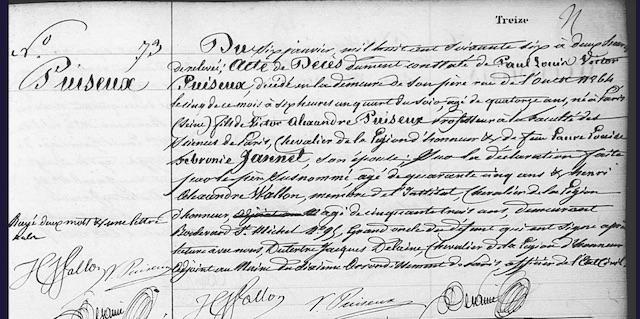 Treize
No 73
Puiseux
Du six janvier, mil huit cent soixante six à deux heures
de relevé, Acte de Décès dument constaté de Paul Louis Victor
Puiseux, décédé en la demeure de son père rue de l'Ouest No 64
le cinq de ce mois à six heures un quart du soir, agé de quatorze ans, né à Paris
(Seine) fils de Victor Alexandre Puiseux Professeur à la Faculté des
Sciences de Paris, Chevalier de la Légion d'honneur & de feu Laure Louise
Jannet, son épouse; sur la déclaration faite
par le père susnommé agé de quarante cinq ans & Henri
Alexandre Wallon, membre de l'Institut, Chevalier de la Légion
d'honneur agé de cinquante trois ans, demeurant
Boulevard St Michel No 95, Grand oncle du défunt qui ont signé après
lecture avec nous, Jacques Delaine, Chevalier de la Légion d'Honneur
Adjoint au Maire du sixième arrondissement de Paris, officier de l'Etat civil.
Rayé deux mots & une lettre
nuls
HWallon VPuiseux
HWallon V Puiseux